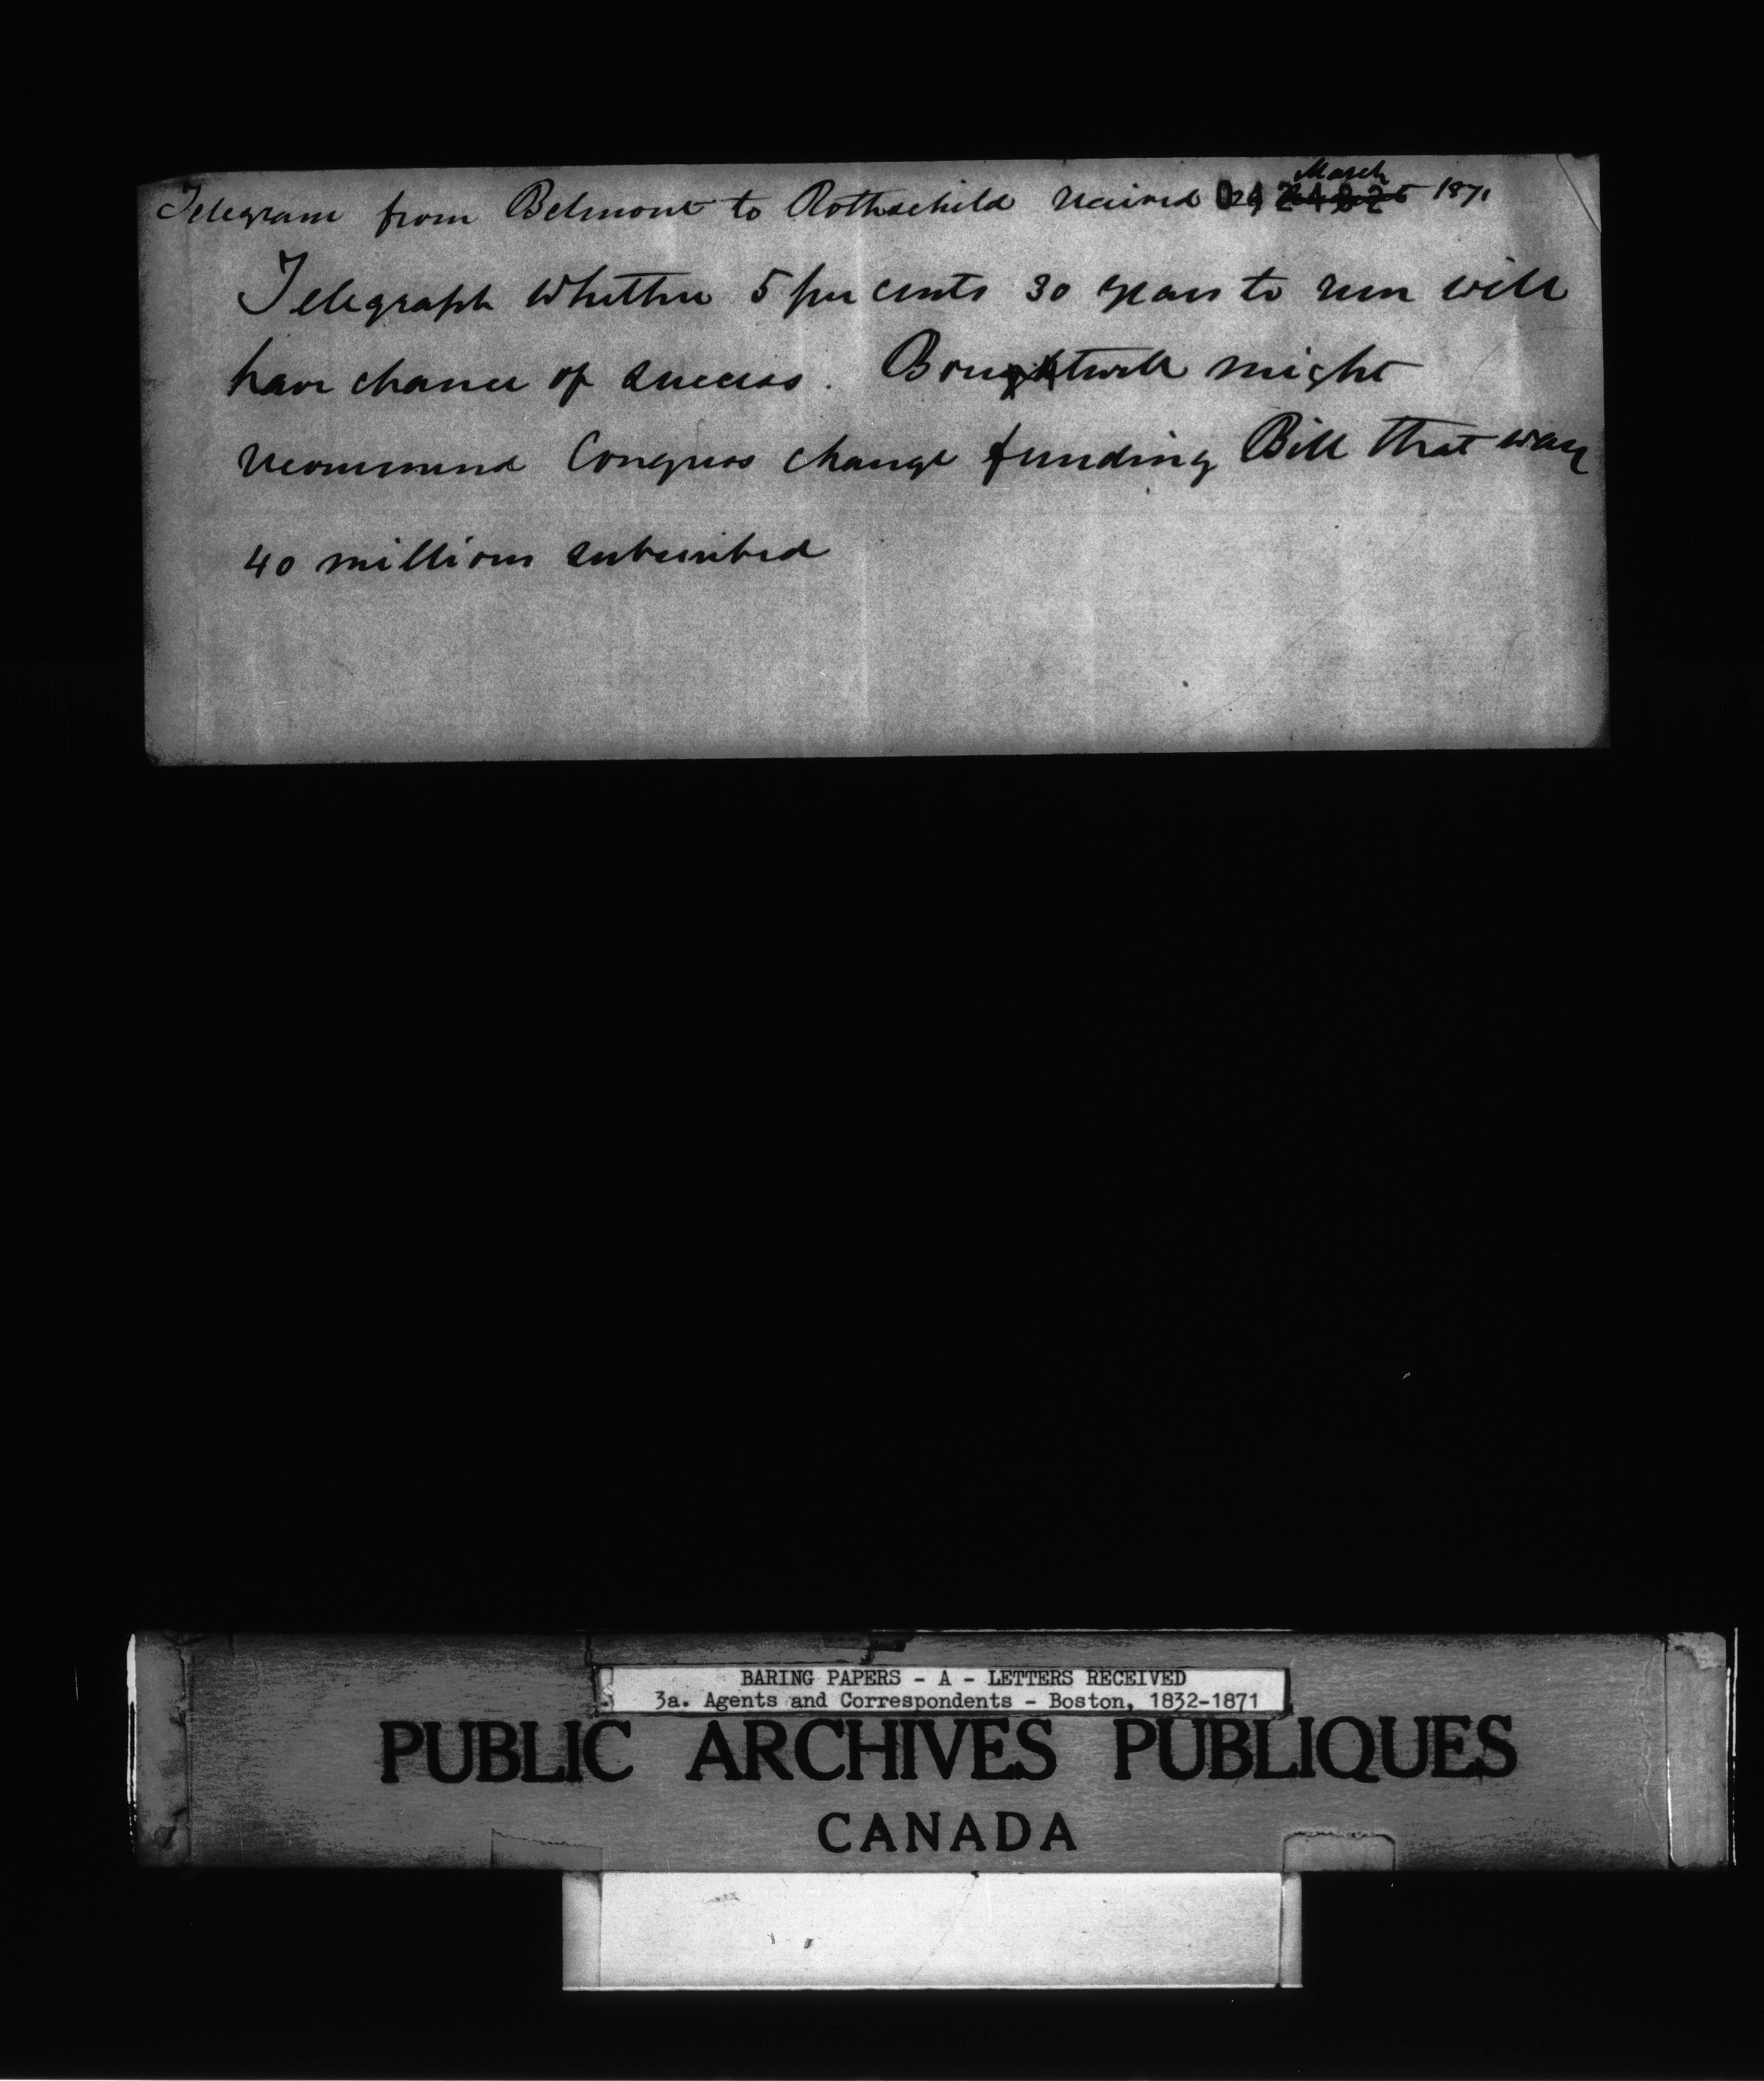 Telegram from Belmont to Rothschild received 24 March 1871
042482
Telegraph whether 5 per cents 30 years to run will
have chance of success. Boutwell might
recommend Congress change funding Bill that way
40 millions subscribed
BARING PAPERS - A - LETTERS RECEIVED
3a. Agents and Correspondents - Boston, 1832-1871
PUBLIC ARCHIVES PUBLIQUES
CANADA